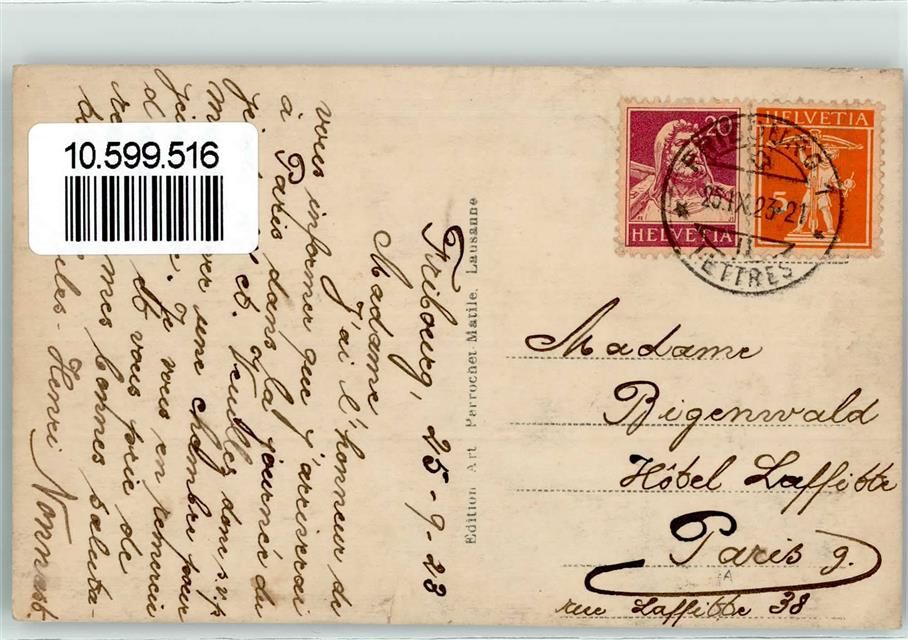 10.599.516
Fribourg, 25-9-23
Madame
J'ai l'honneur de
vous informer que j'arriverai
à Paris dans la journée du
Jeudi ct. Veuillez donc s.v.p.
une chambre pour
Je vous en remercie
et vous prie de
mes bonnes saluta-
Henri Nonnast.
Edition Art. Perrochet Matile. Lausanne
20
HELVETIA
HELVETIA
5
FRIBOURG 1
25.IX.23-21
LETTRES
Madame
Bigenwald
Hôtel Laffitte
Paris 9.
rue Laffitte 38